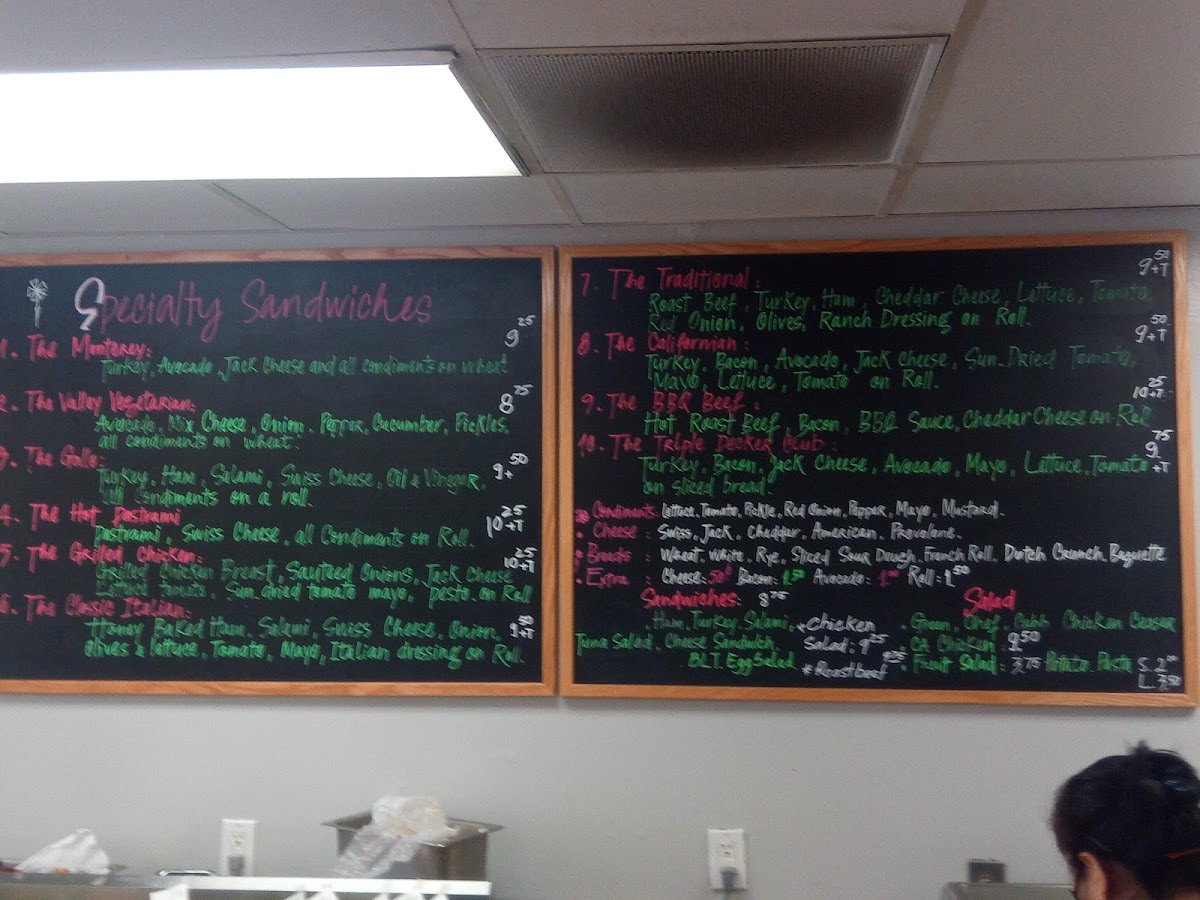 Specialty Sandwiches
1. The Monterey: 9 25
Turkey, Avocado, Jack Cheese and all condiments on wheat
2. The Valley Vegetarian: 8 75
Avocado, Mix Cheese, Onion, Pepper, Cucumber, Pickles,
all condiments on wheat.
3. The Gallo: 9+ 50
Turkey, Ham, Salami, Swiss Cheese, Oil & Vinegar,
all condiments on a roll.
4. The Hot Pastrami 10+T 25
Pastrami, Swiss Cheese, all Condiments on Roll.
5. The Grilled Chicken: 10+T 25
Grilled Chicken Breast, Sauteed Onions, Jack Cheese
Lettuce tomato, Sun dried tomato mayo, pesto on Roll
6. The Classic Italian: 9+T 50
Honey Baked Ham, Salami, Swiss Cheese, Onion,
Olives & lettuce, Tomato, Mayo, Italian dressing on Roll.
7. The Traditional: 9+T 50
Roast Beef, Turkey, Ham, Cheddar Cheese, Lettuce, Tomato,
Red Onion, Olives, Ranch Dressing on Roll.
8. The Californian: 9+T 50
Turkey, Bacon, Avocado, Jack Cheese, Sun-Dried Tomato,
Mayo, Lettuce, Tomato on Roll.
9. The BBQ Beef: 10+T 25
Hot Roast Beef, Bacon, BBQ Sauce, Cheddar Cheese on Roll
10. The Triple Decker Club: 9+T 75
Turkey, Bacon, Jack Cheese, Avocado, Mayo, Lettuce, Tomato
on sliced bread.
Condiments: Lettuce, Tomato, Pickle, Red Onion, Pepper, Mayo, Mustard.
Cheese: Swiss, Jack, Cheddar, American, Provolone.
Breads: Wheat, White, Rye, Sliced Sour Dough, French Roll, Dutch Crunch, Baguette
Extra: Cheese: 50¢ Bacon: 1.50 Avocado: 1.00 Roll: 1.50
Sandwiches: 8 75
Ham, Turkey, Salami,
Tuna Salad, Cheese Sandwich,
BLT, Egg Salad
* Chicken
Salad: 9 25
* Roast beef 9.25
Salad
Green, Chef, Cobb Chicken Ceasar
CA Chicken: 9.50
Fruit Salad: 3.75 Potato, Pasta S. 2
L. 3.50